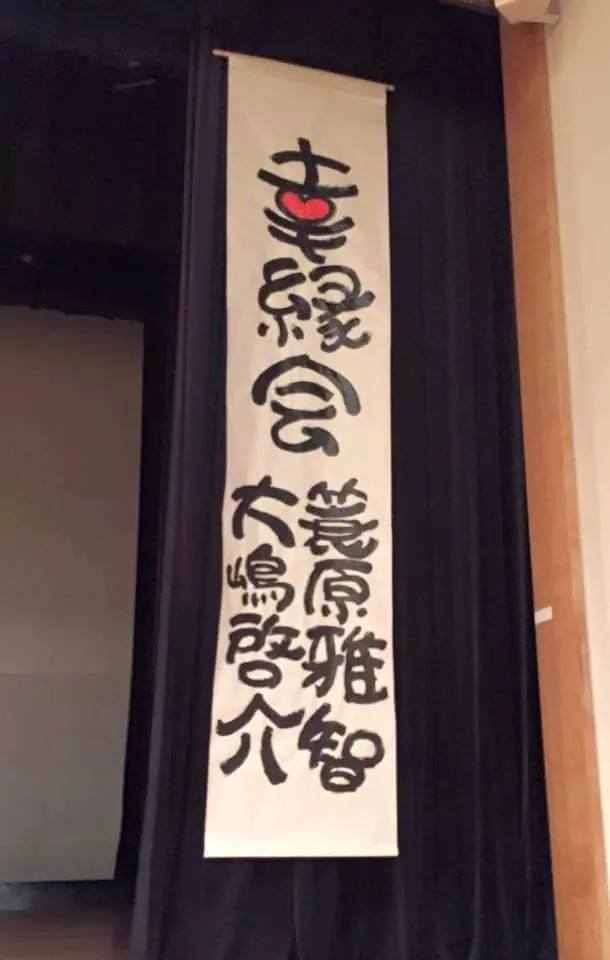 幸縁会
簑原雅智
大嶋啓介